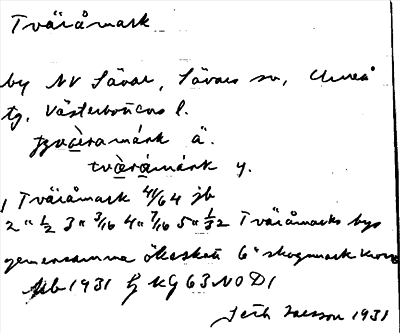 Tväråmark
by NV Sävar, Sävars sn, Umeå
tg, Västerbottens l.
tvæ̀ramárk ä.
tvæ̀råmárk y.
1 Tväråmark 41/64 jb
2 " 1/2 3 " 3/16 4 " 7/16 5 " 1/32 Tväråmarks bys
gemensamma 6 " skogsmark krono
Jb 1931 KG 63 NO D1
1931